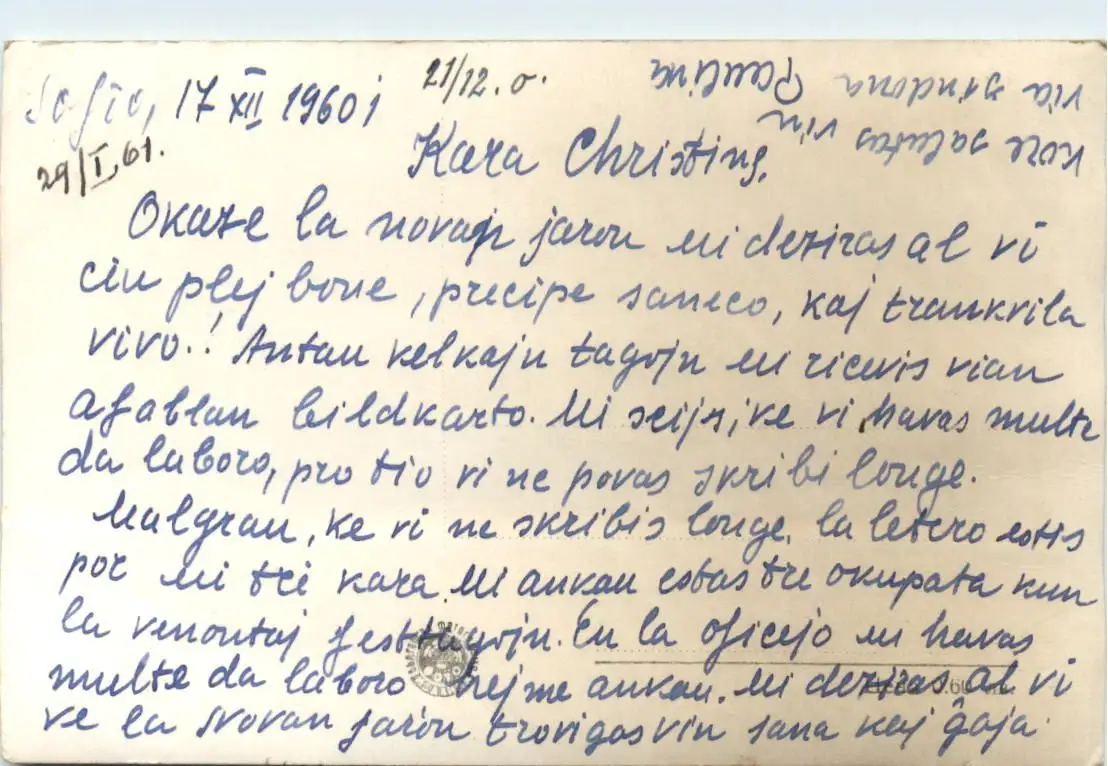 Sofio, 17 XII 1960 j
21/12. o.
29/I.61.
Kara Christine,
Okaze la novajn jaron mi deziras al vi
ciu plej bone, precipe saneco, kaj trankvila
vivo.! Antau kelkajn tagojn mi ricevis vian
afablan bildkarto. Mi scijs, ke vi havas multe
da laboro, pro tio vi ne povas skribi longe.
Malgrau, ke vi ne skribis longe, la letero estis
por mi tre kara. Mi ankau estas tre okupata kun
la venontaj festtagojn. En la oficejo mi havas
multe da laboro hejme ankau. Mi deziras al vi
ke la novan jaron trovigas vin sana kaj ĝoja.
kore salutas vin
via sindona Pauline